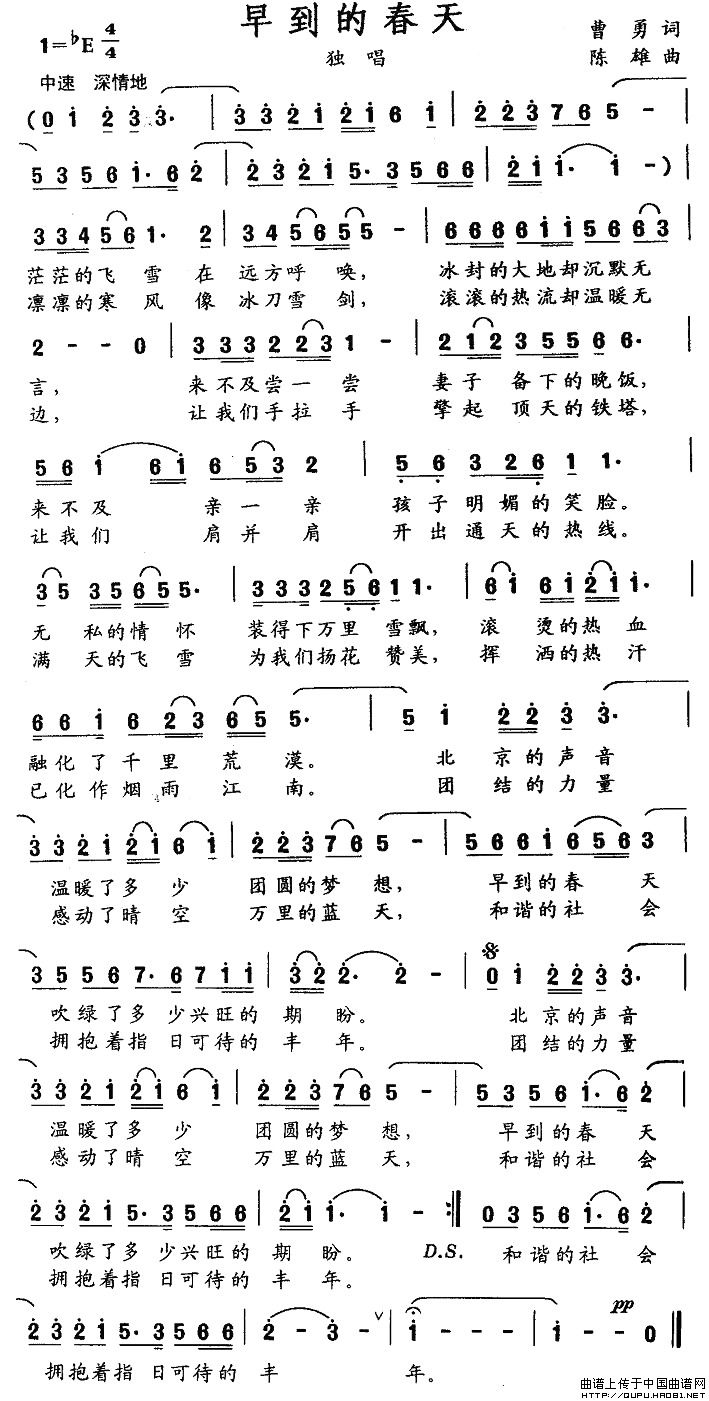 早到的春天
1=♭E 4/4
独唱
曹勇词
陈雄曲
中速 深情地
(0 1 2 3 3· | 3 3 2 1 2 1 6 1 | 2 2 3 7 6 5 - |
5 3 5 6 1· 6 2 | 2 3 2 1 5· 3 5 6 6 | 2 1 1· 1 -) |
3 3 4 5 6 1· 2 | 3 4 5 6 5 5 - | 6 6 6 6 1 1 5 6 6 3 |
茫茫的飞雪在远方呼唤, 冰封的大地却沉默无
凛凛的寒风像冰刀雪剑, 滚滚的热流却温暖无
2 - - 0 | 3 3 3 3 2 2 3 1 - | 2 1 2 3 5 5 6 6· |
言, 来不及尝一尝 妻子备下的晚饭,
边, 让我们手拉手 擎起顶天的铁塔,
5 6 1 6 1 6 5 3 2 | 5 6 3 2 6 1 1· |
来不及亲一亲 孩子明媚的笑脸。
让我们肩并肩 开出通天的热线。
3 5 3 5 6 5 5· | 3 3 3 2 5 6 1 1· | 6 1 6 1 2 1 1· |
无私的情怀 装得下万里雪飘, 滚烫的热血
满天的飞雪 为我们扬花赞美, 挥洒的热汗
6 6 1 6 2 3 6 5 5· | 5 1 2 2 3 3· |
融化了千里荒漠。 北京的声音
已化作烟雨江南。 团结的力量
3 3 2 1 2 1 6 1 | 2 2 3 7 6 5 - | 5 6 6 1 6 5 6 3 |
温暖了多少团圆的梦想, 早到的春天
感动了晴空万里的蓝天, 和谐的社会
3 5 5 6 7· 6 7 1 1 | 3 2 2· 2 - | 𝄋 0 1 2 2 3 3· |
吹绿了多少兴旺的期盼。 北京的声音
拥抱着指日可待的丰年。 团结的力量
3 3 2 1 2 1 6 1 | 2 2 3 7 6 5 - | 5 3 5 6 1· 6 2 |
温暖了多少团圆的梦想, 早到的春天
感动了晴空万里的蓝天, 和谐的社会
2 3 2 1 5· 3 5 6 6 | 2 1 1· 1 - :‖ 0 3 5 6 1· 6 2 |
吹绿了多少兴旺的期盼。 D.S. 和谐的社会
拥抱着指日可待的丰年。
2 3 2 1 5· 3 5 6 6 | 2 - 3 - ∨ | 1 - - - | 1 - - 0 ‖
pp
拥抱着指日可待的丰年。
曲谱上传于中国曲谱网
www.QUPU.HAO81.NET